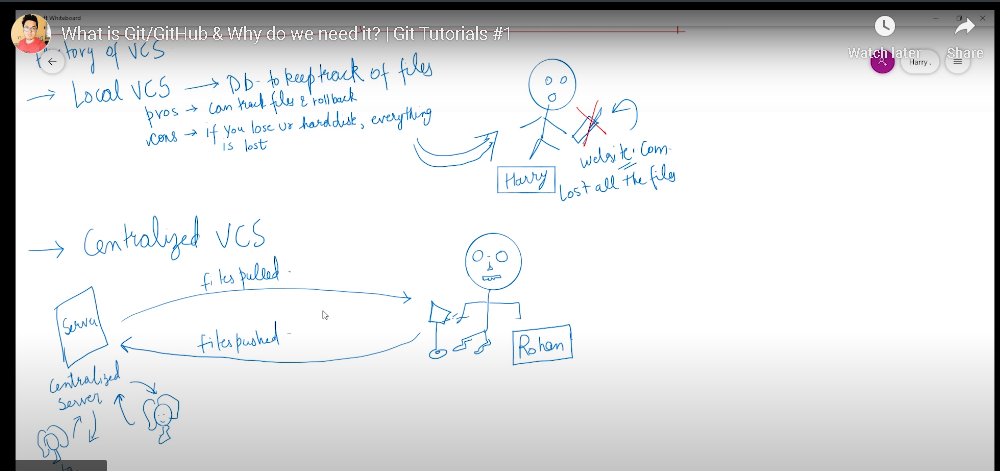 Whiteboard
What is Git/GitHub & Why do we need it? | Git Tutorials #1
Watch later
Share
Harry .
History of VCS
→ Local VCS → Db - to keep track of files
pros → can track files & rollback
cons → if you lose ur hard disk, everything
is lost
Harry
website.com.
Lost all the files
→ Centralized VCS
files pulled -
Server
files pushed -
Rohan
Centralized
Server